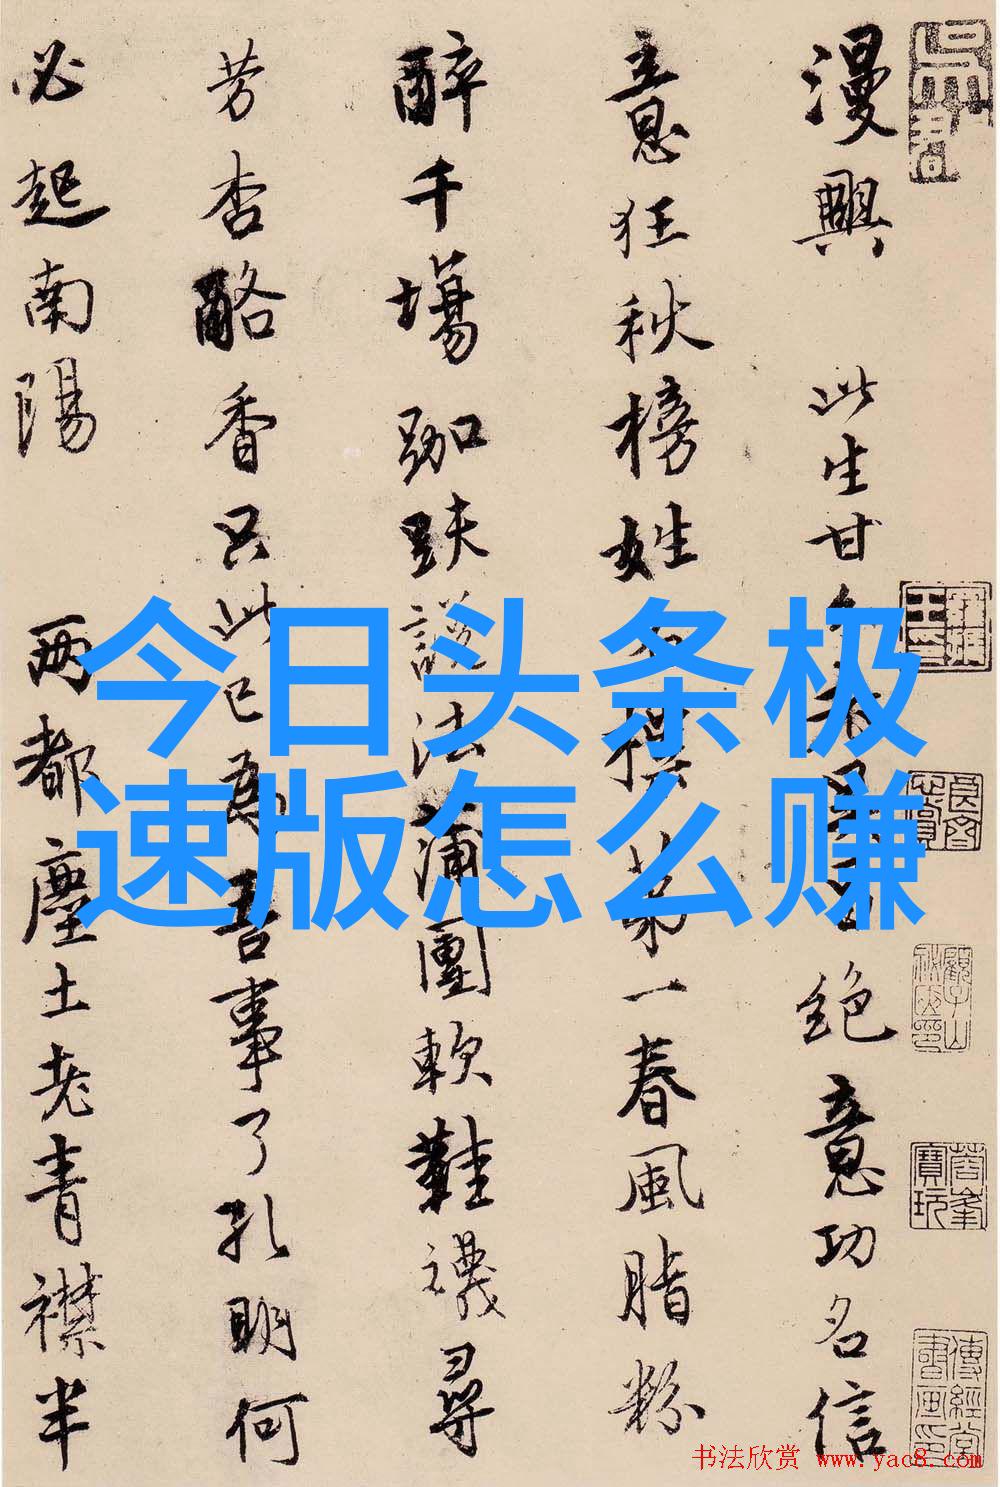 今日头条极
速版怎么赚
漫興 此生甘 絶意功名信
意狂秋榜姓 第一春風脂粉
醉千場跏趺説法蒲團軟鞋襪尋
芳杏酪香只此已為吾事了孔明何
必起南陽 两都塵土老青襟半
书法欣赏 www.yac8.com